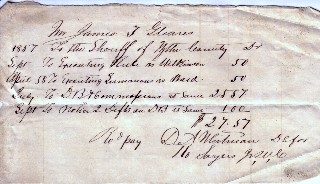 Mr James T Gleaves
1857 To the Sheriff of Wythe County Dr
Sept To Executing Writ vs Wilkinson 50
April 58 To Executing Summons vs Baird 50
To D B & Commissions vs same 25 57
Sept To Notice 2 Defts on D B vs same 1 00
$ 27.57
Rec'd pay D S for